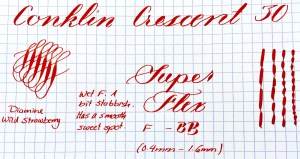 Conklin Crescent 50
Super
Flex
F - BB
(0.9mm - 1.6mm)
Wet F. A
bit stubbish.
Has a smooth
sweet spot.
Diamine
Wild Strawberry